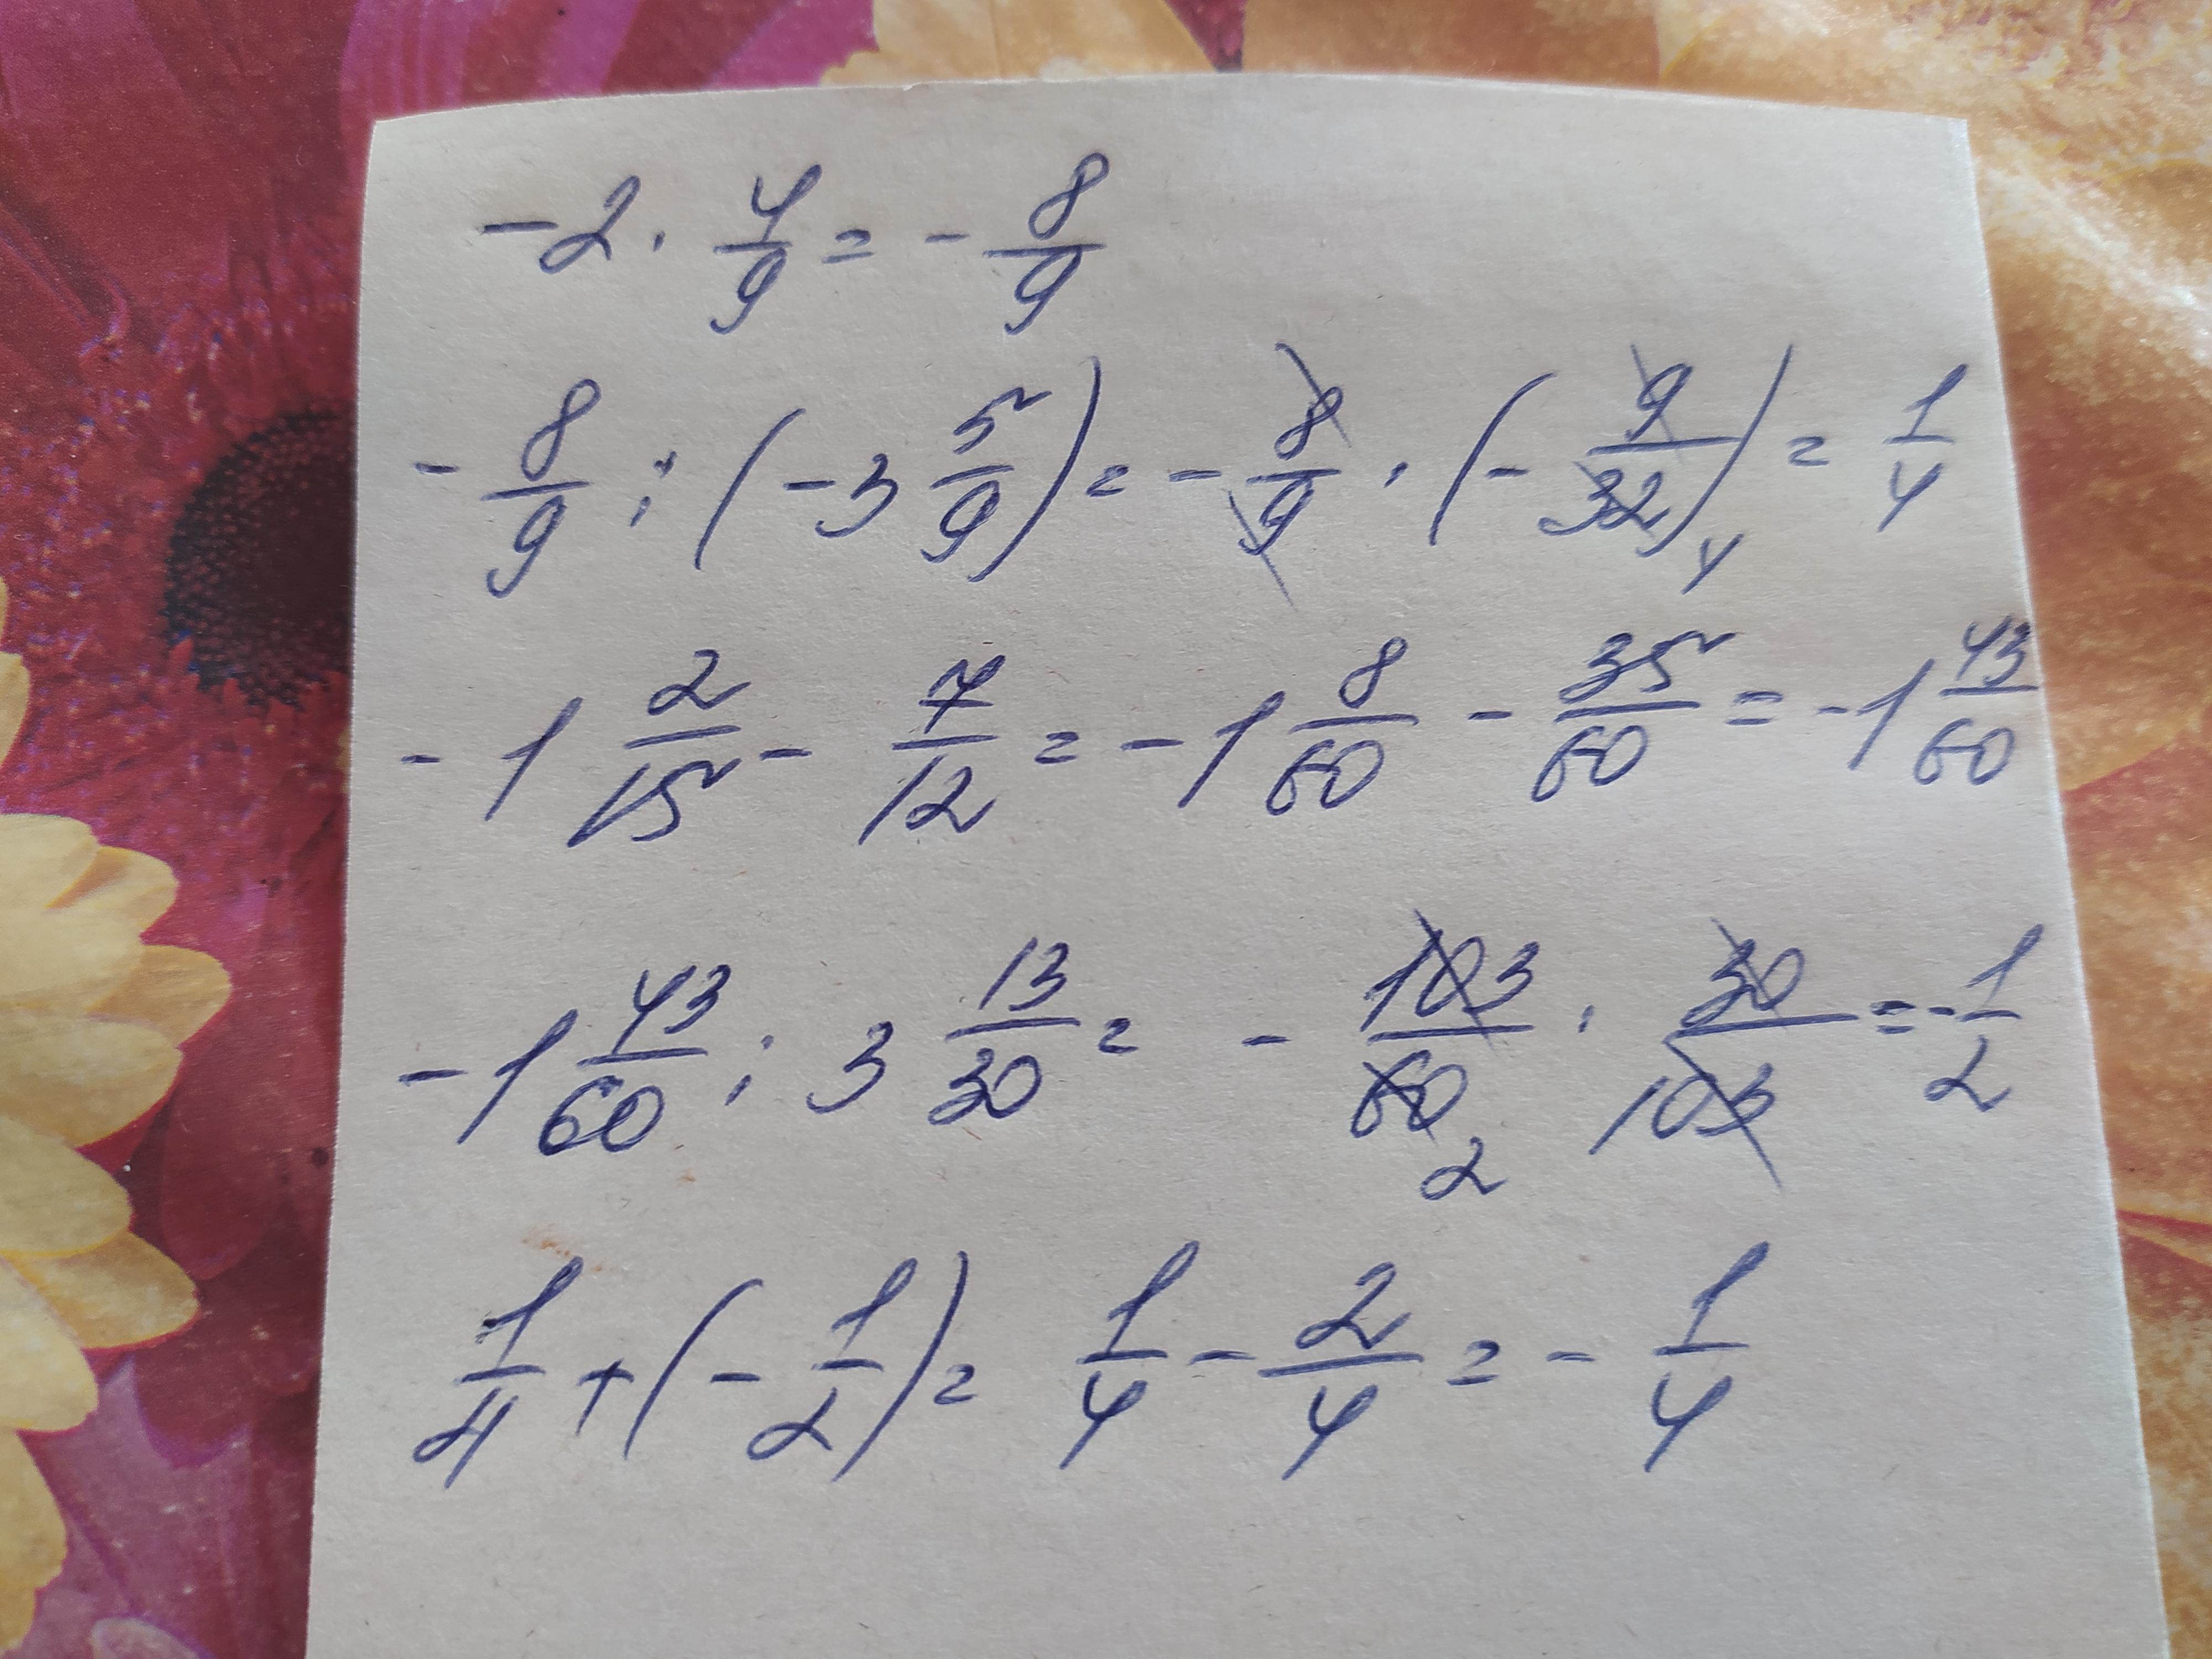 -2 · 4/9 = - 8/9
- 8/9 : (-3 5/9) = - 8/9 · (- 9/32) 4 = 1/4
- 1 2/15 - 7/12 = -1 8/60 - 35/60 = -1 43/60
-1 43/60 : 3 13/30 = - 103/60 2 · 30/103 = - 1/2
1/4 + (- 1/2) = 1/4 - 2/4 = - 1/4